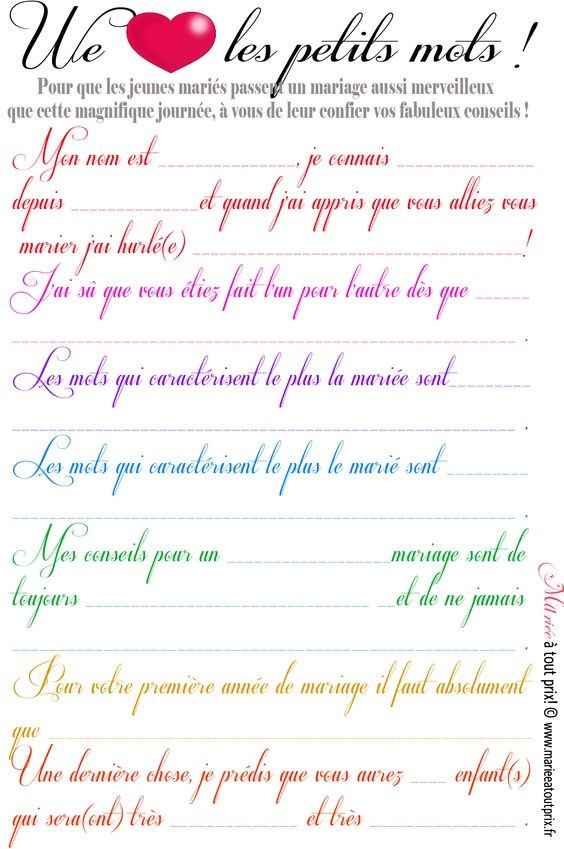 We ❤ les petits mots !
Pour que les jeunes mariés passent un mariage aussi merveilleux
que cette magnifique journée, à vous de leur confier vos fabuleux conseils !
Mon nom est _______________, je connais _______________
depuis ______________et quand j'ai appris que vous alliez vous
marier j'ai hurlé(e) ____________________________________!
J'ai sû que vous étiez fait l'un pour l'autre dès que ______
_______________________________________________________ .
Les mots qui caractérisent le plus la mariée sont_________
_______________________________________________________ .
Les mots qui caractérisent le plus le marié sont _________
_______________________________________________________ .
Mes conseils pour un __________________mariage sont de
toujours _______________________________ __et de ne jamais
_______________________________________________________ .
Pour votre première année de mariage il faut absolument
que _____________________________________________________
Une dernière chose, je prédis que vous aurez ____ enfant(s)
qui sera(ont) très ______________ et très ______________ .
Mariée à tout prix! © www.marieeatoutprix.fr